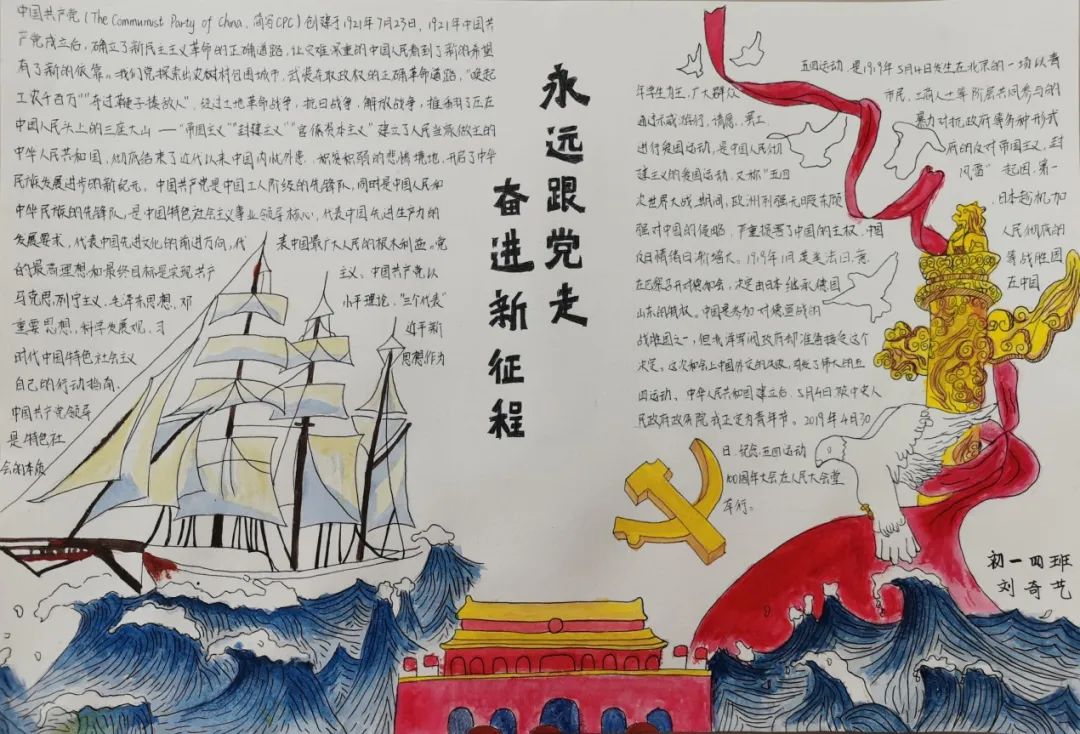 中国共产党(The Communist Party of China,简写CPC)创建于1921年7月23日,1921年中国共
产党成立后,确立了新民主主义革命的正确道路,让灾难深重的中国人民看到了新的希望
有了新的依靠。我们党探索出农村包围城市,武装夺取政权的正确革命道路,"唤起
工农千百万""夺过鞭子揍敌人",经过土地革命战争,抗日战争,解放战争,推翻了压在
中国人民头上的三座大山——"帝国主义""封建主义""官僚资本主义"建立了人民当家做主的
中华人民共和国,彻底结束了近代以来中国内忧外患,积贫积弱的悲惨境地,开启了中华
民族发展进步的新纪元。中国共产党是中国工人阶级的先锋队,同时是中国人民和
中华民族的先锋队,是中国特色社会主义事业领导核心,代表中国先进生产力的
发展要求,代表中国先进文化的前进方向,代表中国最广大人民的根本利益。党
的最高理想和最终目标是实现共产主义,中国共产党以
马克思,列宁主义,毛泽东思想,邓小平理论,"三个代表"
重要思想,科学发展观,习近平新
时代中国特色社会主义思想作为
自己的行动指南.
中国共产党领导
是特色社
会的本质
永远跟党走
奋进新征程
五四运动,是1919年5月4日发生在北京的一场以青
年学生为主,广大群众市民,工商人士等阶层共同参与的
通过示威游行,请愿,罢工,暴力对抗政府等多种形式
进行爱国运动,是中国人民彻底的反对帝国主义,封
建主义的爱国运动,又称"五四风雷"起因:第一
次世界大战期间,欧洲列强无暇东顾日本趁机加
强对中国的侵略,严重损害了中国的主权,中国人民彻底的
反日情绪日渐增大。1919年1月是美法日,意等战胜国
在巴黎召开对德和会,决定由日本继承德国在中国
山东的特权。中国是参加对德宣战的
战胜国之一,但北洋军阀政府却准备接受这个
决定。这次和会上中国外交的失败,引发了伟大的五
四运动、中华人民共和国建立后,5月4日被中央人
民政府政务院我正定为青年节。2019年4月30
日,纪念五四运动
100周年大会在人民大会堂
举行。
初一四班
刘奇艺